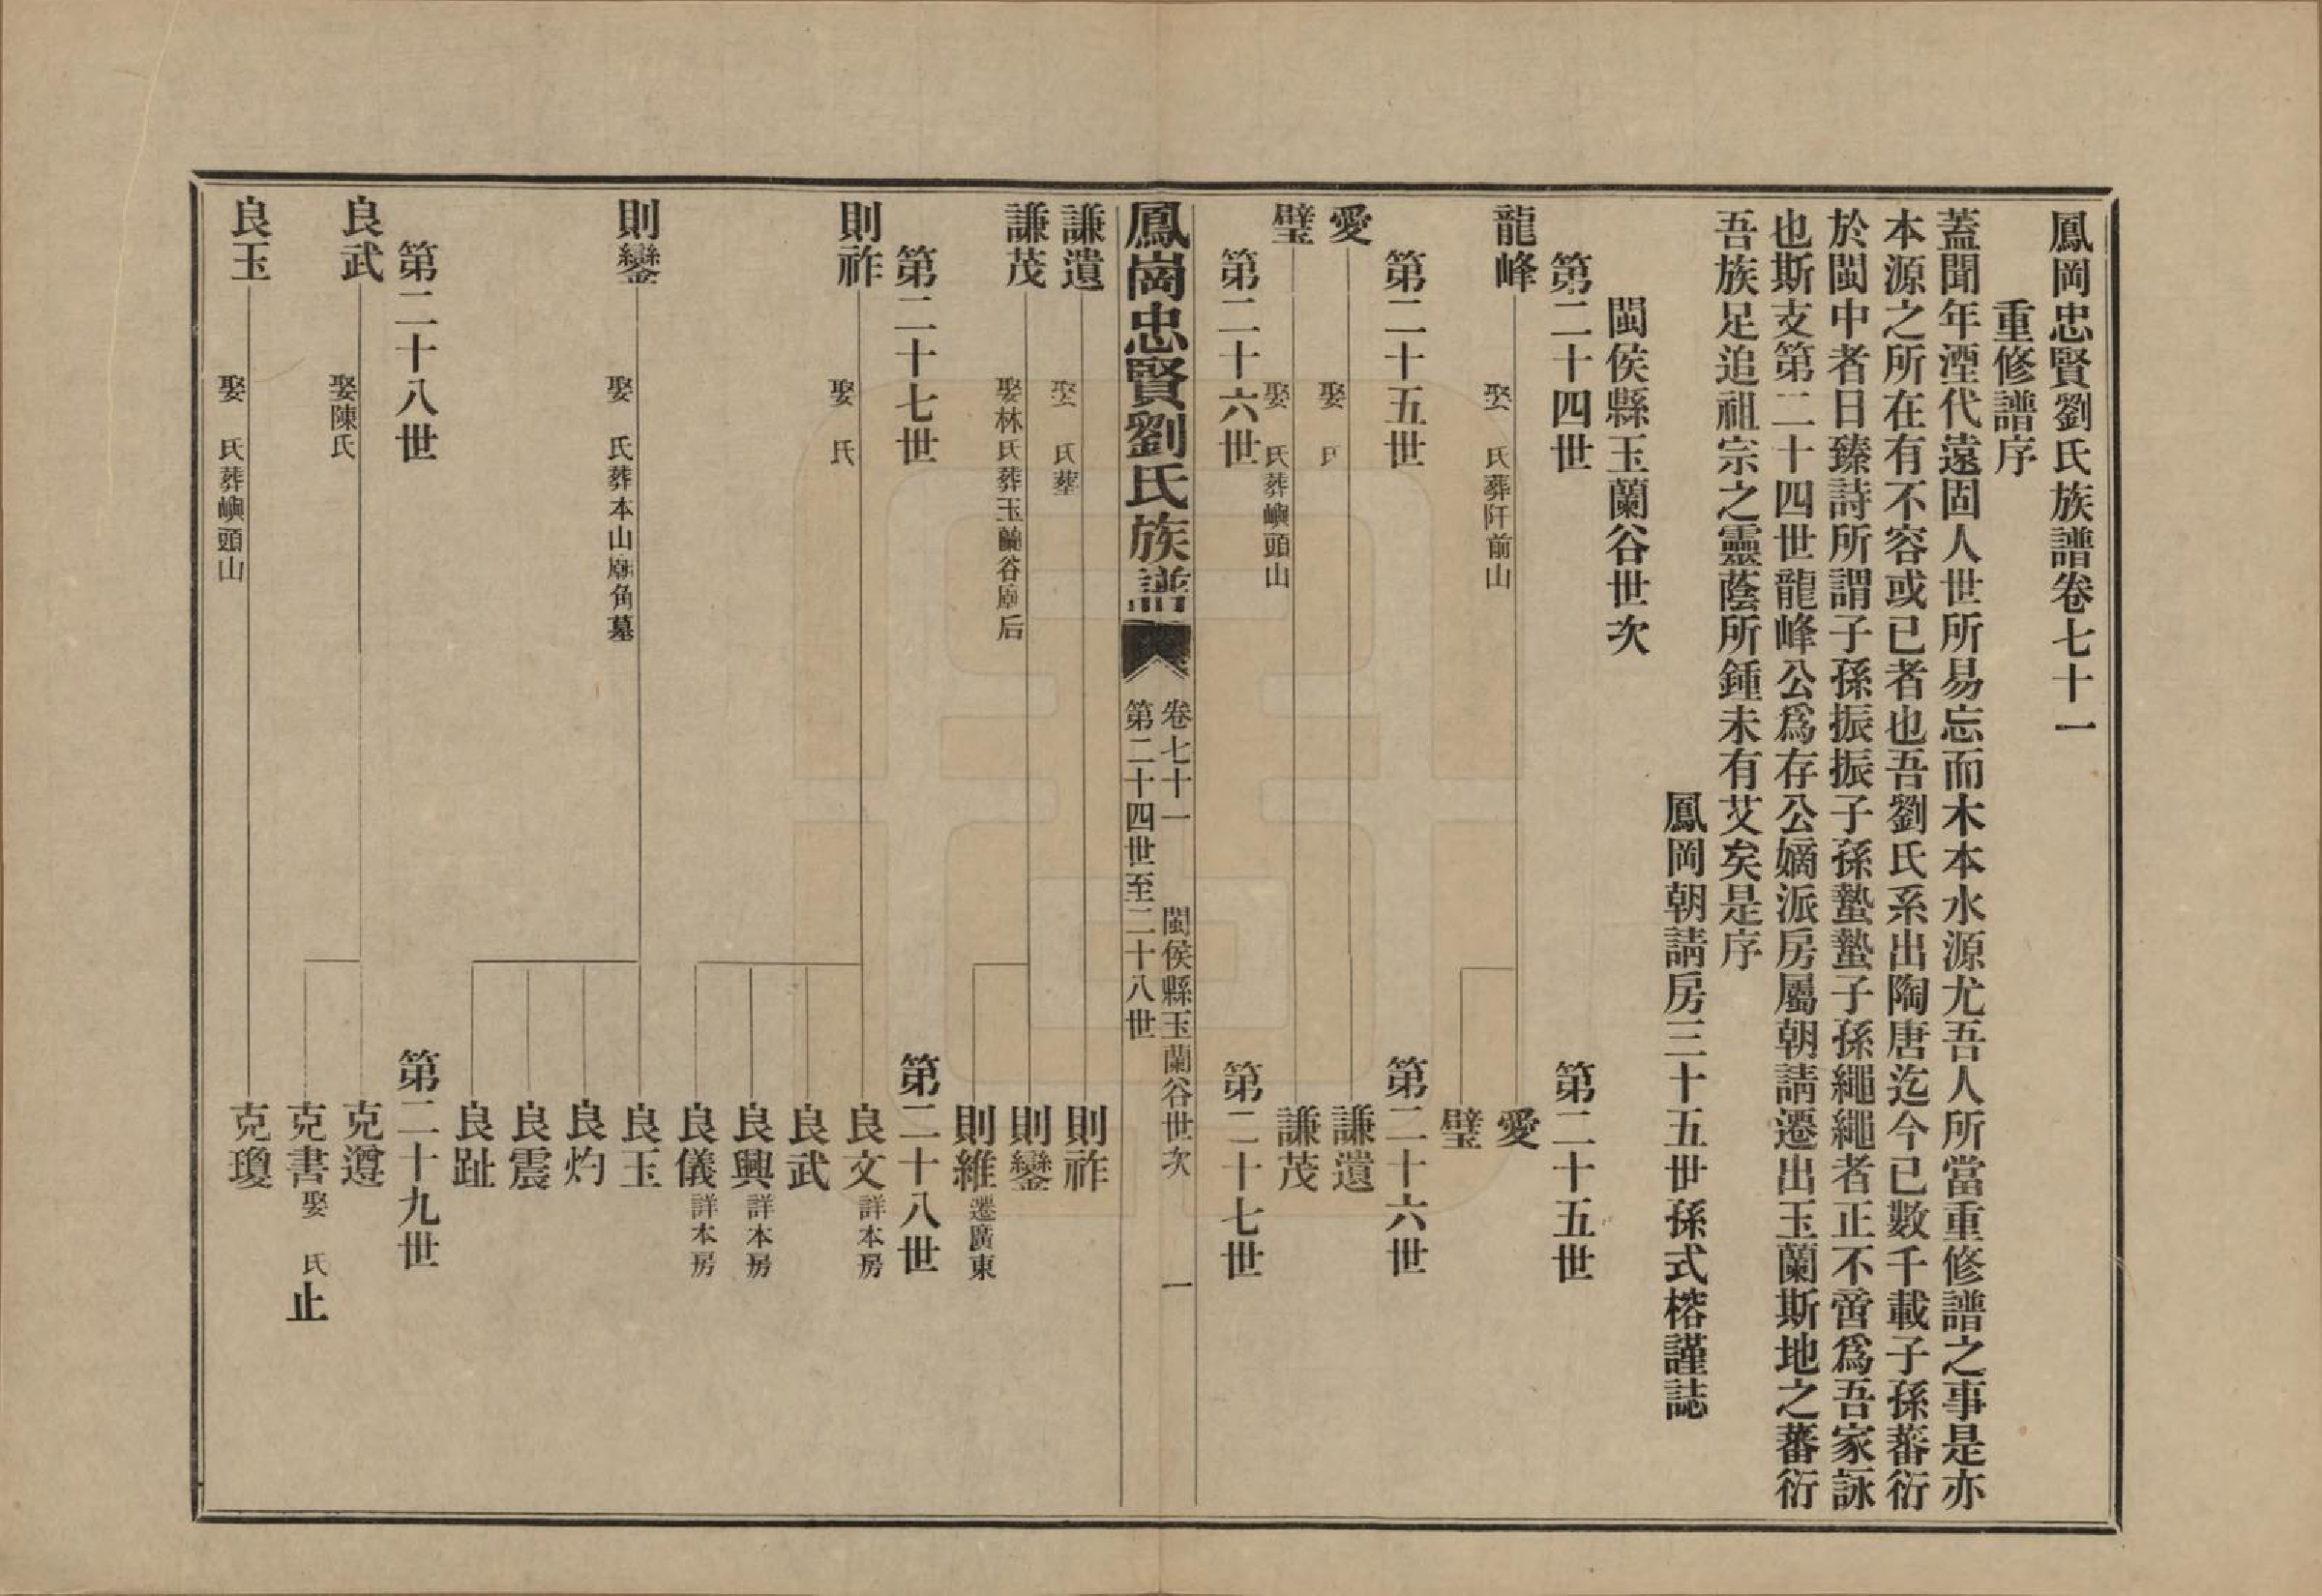 鳳岡忠賢劉氏族譜卷七十一
重修譜序
蓋聞年湮代遠固人世所易忘而木本水源尤吾人所當重修譜之事是亦
本源之所在有不容或已者也吾劉氏系出陶唐迄今已數千載子孫蕃衍
於閩中者日臻詩所謂子孫振振子孫蟄蟄子孫繩繩者正不啻爲吾家詠
也斯支第二十四世龍峰公爲存公嫡派房屬朝請遷出玉蘭斯地之蕃衍
吾族足追祖宗之靈蔭所鍾未有艾矣是序
鳳岡朝請房三十五世孫式榕謹誌
閩侯縣玉蘭谷世次
第二十四世
第二十五世
龍峰
娶 氏葬阡前山
愛
璧
第二十五世
第二十六世
愛
娶 氏
謙遺
璧
娶 氏葬嶼頭山
謙茂
第二十六世
第二十七世
鳳崗忠賢劉氏族譜
卷七十一 閩侯縣玉蘭谷世次 一
第二十四世至二十八世
謙遺
娶 氏葬
則祚
謙茂
娶林氏葬玉蘭谷廟后
則鑾
則維遷廣東
第二十七世
第二十八世
則祚
娶 氏
良文詳本房
良武
良興詳本房
良儀詳本房
則鑾
娶 氏葬本山廟角墓
良玉
良灼
良震
良趾
第二十八世
第二十九世
良武
娶陳氏
克遵
克書娶 氏止
良玉
娶 氏葬嶼頭山
克瓊